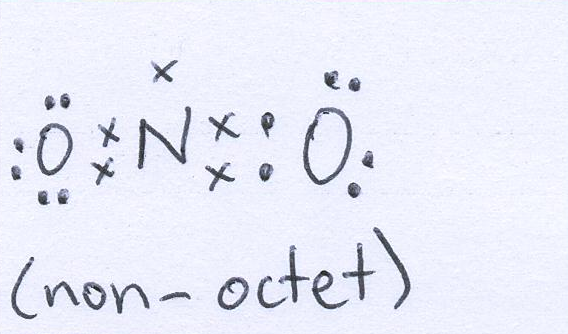 O N O
(non-octet)